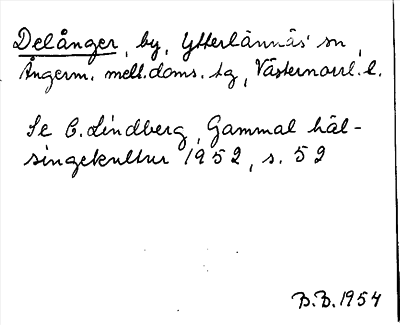 Delånger, by, Ytterlännäs sn,
Ångerm. mell. doms. tg, Västernorrl. l.
Se C. Lindberg, Gammal häl-
singekultur 1952, s. 52
B.B. 1954